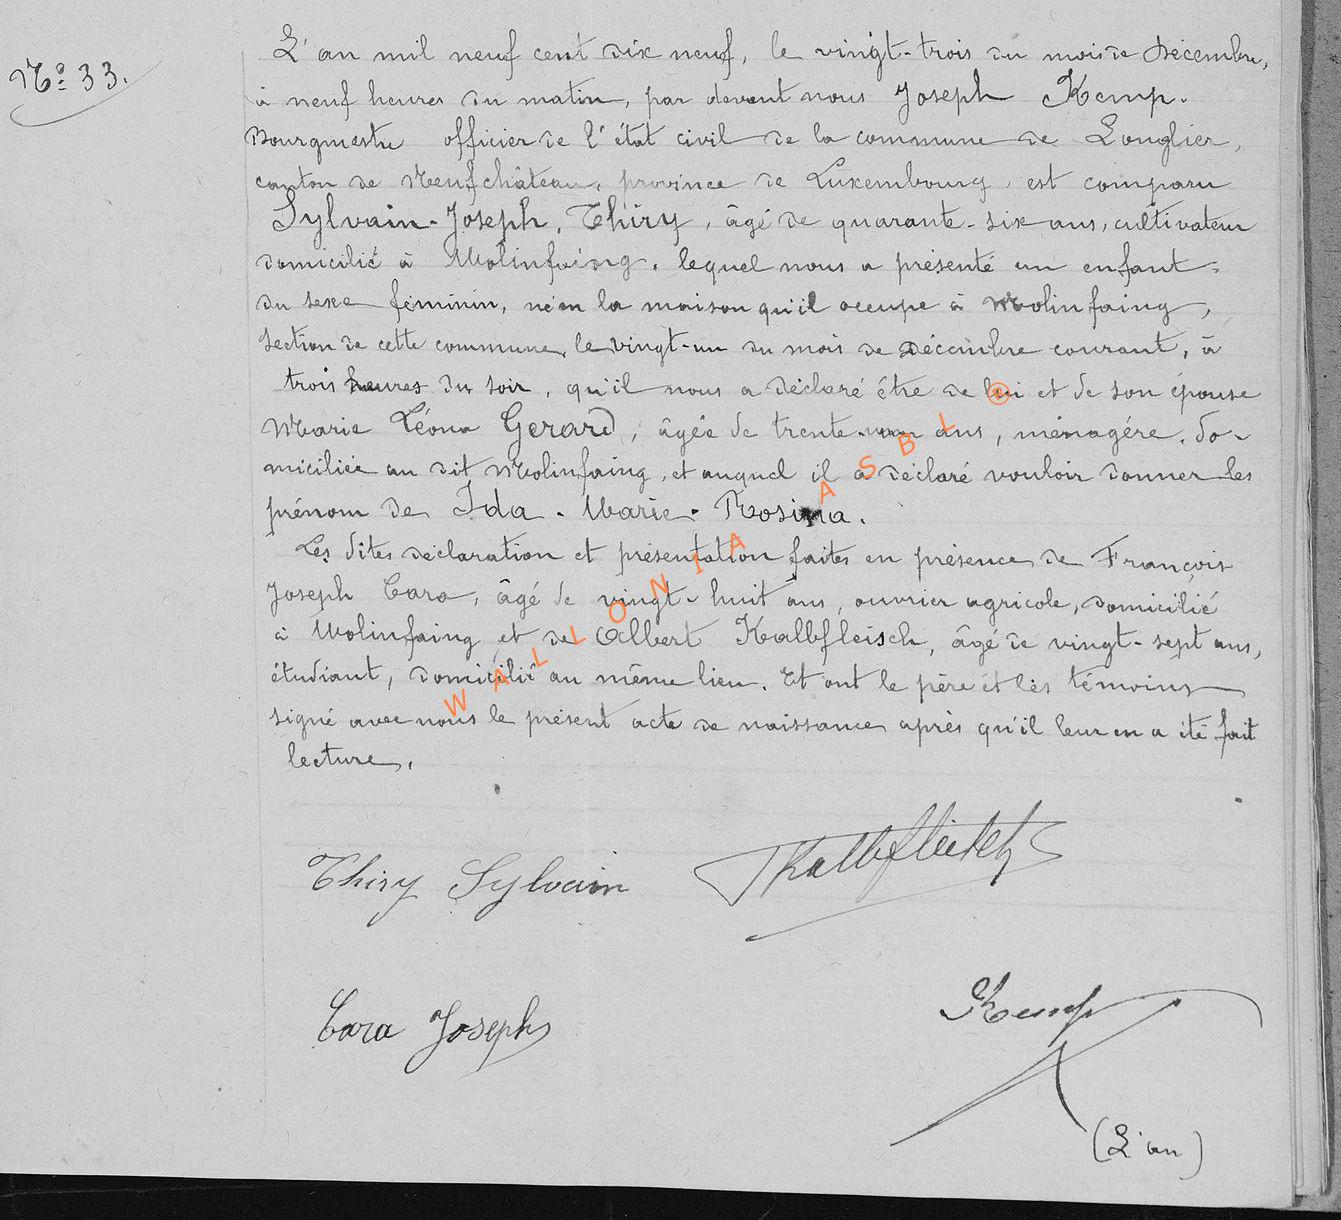 N° 33.
L'an mil neuf cent dix neuf, le vingt-trois du mois de Décembre,
à neuf heures du matin, par devant nous Joseph Kemp.
Bourgmestre officier de l'état civil de la commune de Longlier,
canton de Neufchâteau, province de Luxembourg, est comparu
Sylvain-Joseph, Thiry, âgé de quarante-six ans, cultivateur
domicilié à Molinfaing, lequel nous a présenté un enfant
du sexe féminin, né en la maison qu'il occupe à Molinfaing,
section de cette commune, le vingt-un du mois de Décembre courant, à
trois heures du soir, qu'il nous a déclaré être de lui et de son épouse
Marie Léona Gerard, âgée de trente ans, ménagère, do-
miciliée au dit Molinfaing, et auquel il a déclaré vouloir donner les
prénom de Ida - Marie - Rosina.
Les dites déclaration et présentation faites en présence de François
Joseph Cara, âgé de vingt-huit ans, ouvrier agricole, domicilié
à Molinfaing et de Albert Kalbfleisch, âgé de vingt-sept ans,
étudiant, domicilié au même lieu. Et ont le père et les témoins
signé avec nous le présent acte de naissance après qu'il leur en a été fait
lecture.
WALLONIA ASBL ®
Thiry Sylvain
Kalbfleisch
Cara Joseph
Kemp
(L'an)